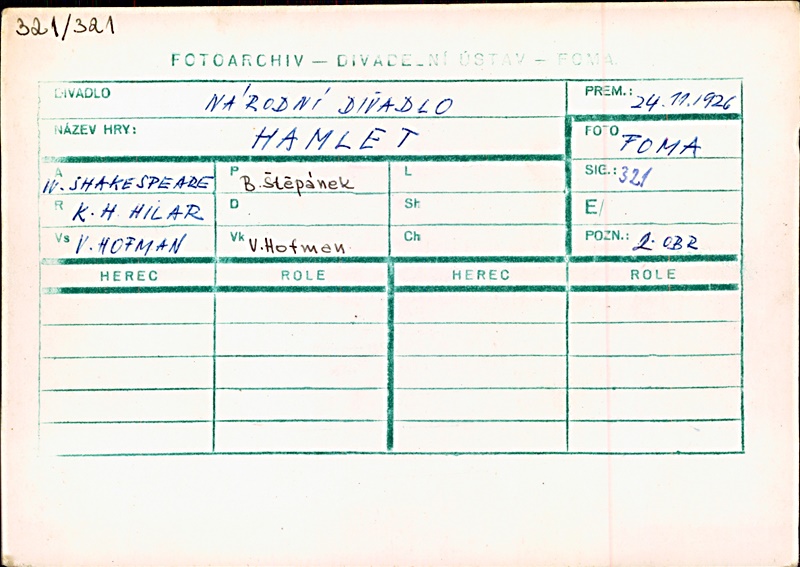 321/321
FOTOARCHIV — DIVADELNÍ ÚSTAV — FOMA
DIVADLO NÁRODNÍ DIVADLO PREM.: 24.11.1926
NÁZEV HRY: HAMLET FOTO FOMA
A W. SHAKESPEARE P B. Štěpánek L SIG.: 321
R K. H. HILAR D Sh E/
Vs V. HOFMAN Vk V. Hofman Ch POZN.: 2. OBR
HEREC ROLE HEREC ROLE